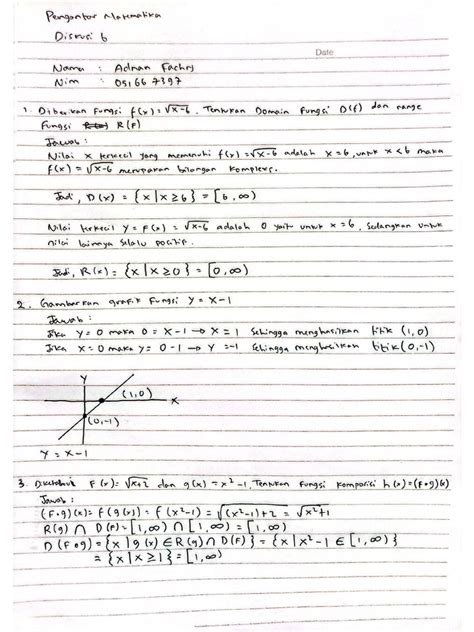 Pengantar Matematika
Diskusi 6
Date
Nama : Adnan Fachry
Nim : 051667397
1. Diberikan Fungsi f(x) = √x-6. Tentukan Domain Fungsi D(f) dan range
Fungsi R(F)
Jawab :
Nilai x terkecil yang memenuhi f(x) = √x-6 adalah x = 6, untuk x < 6 maka
f(x) = √x-6 merupakan bilangan kompleks.
Jadi, D(x) = {x | x ≥ 6} = [6, ∞)
Nilai terkecil y = f(x) = √x-6 adalah 0 yaitu untuk x = 6, Sedangkan untuk
nilai lainnya selalu positif.
Jadi, R(x) = {x | x ≥ 0} = [0, ∞)
2. Gambarkan grafik Fungsi y = x - 1
Jawab :
Jika y = 0 maka 0 = x - 1 → x = 1 Sehingga menghasilkan titik (1,0)
Jika x = 0 maka y = 0 - 1 → y = -1 Sehingga menghasilkan titik (0,-1)
y
(1,0)
x
(0,-1)
y = x - 1
3. Diketahui F(x) = √x+2 dan g(x) = x² - 1, Tentukan Fungsi komposisi h(x) = (f∘g)(x)
Jawab :
(F∘g)(x) = f(g(x)) = f(x²-1) = √(x²-1)+2 = √x²+1
R(g) ∩ D(F) = [1, ∞) ∩ [1, ∞) = [1, ∞)
D(F∘g) = {x | g(x) ∈ R(g) ∩ D(F)} = {x | x² - 1 ∈ [1, ∞)}
= {x | x ≥ 1} = [1, ∞)